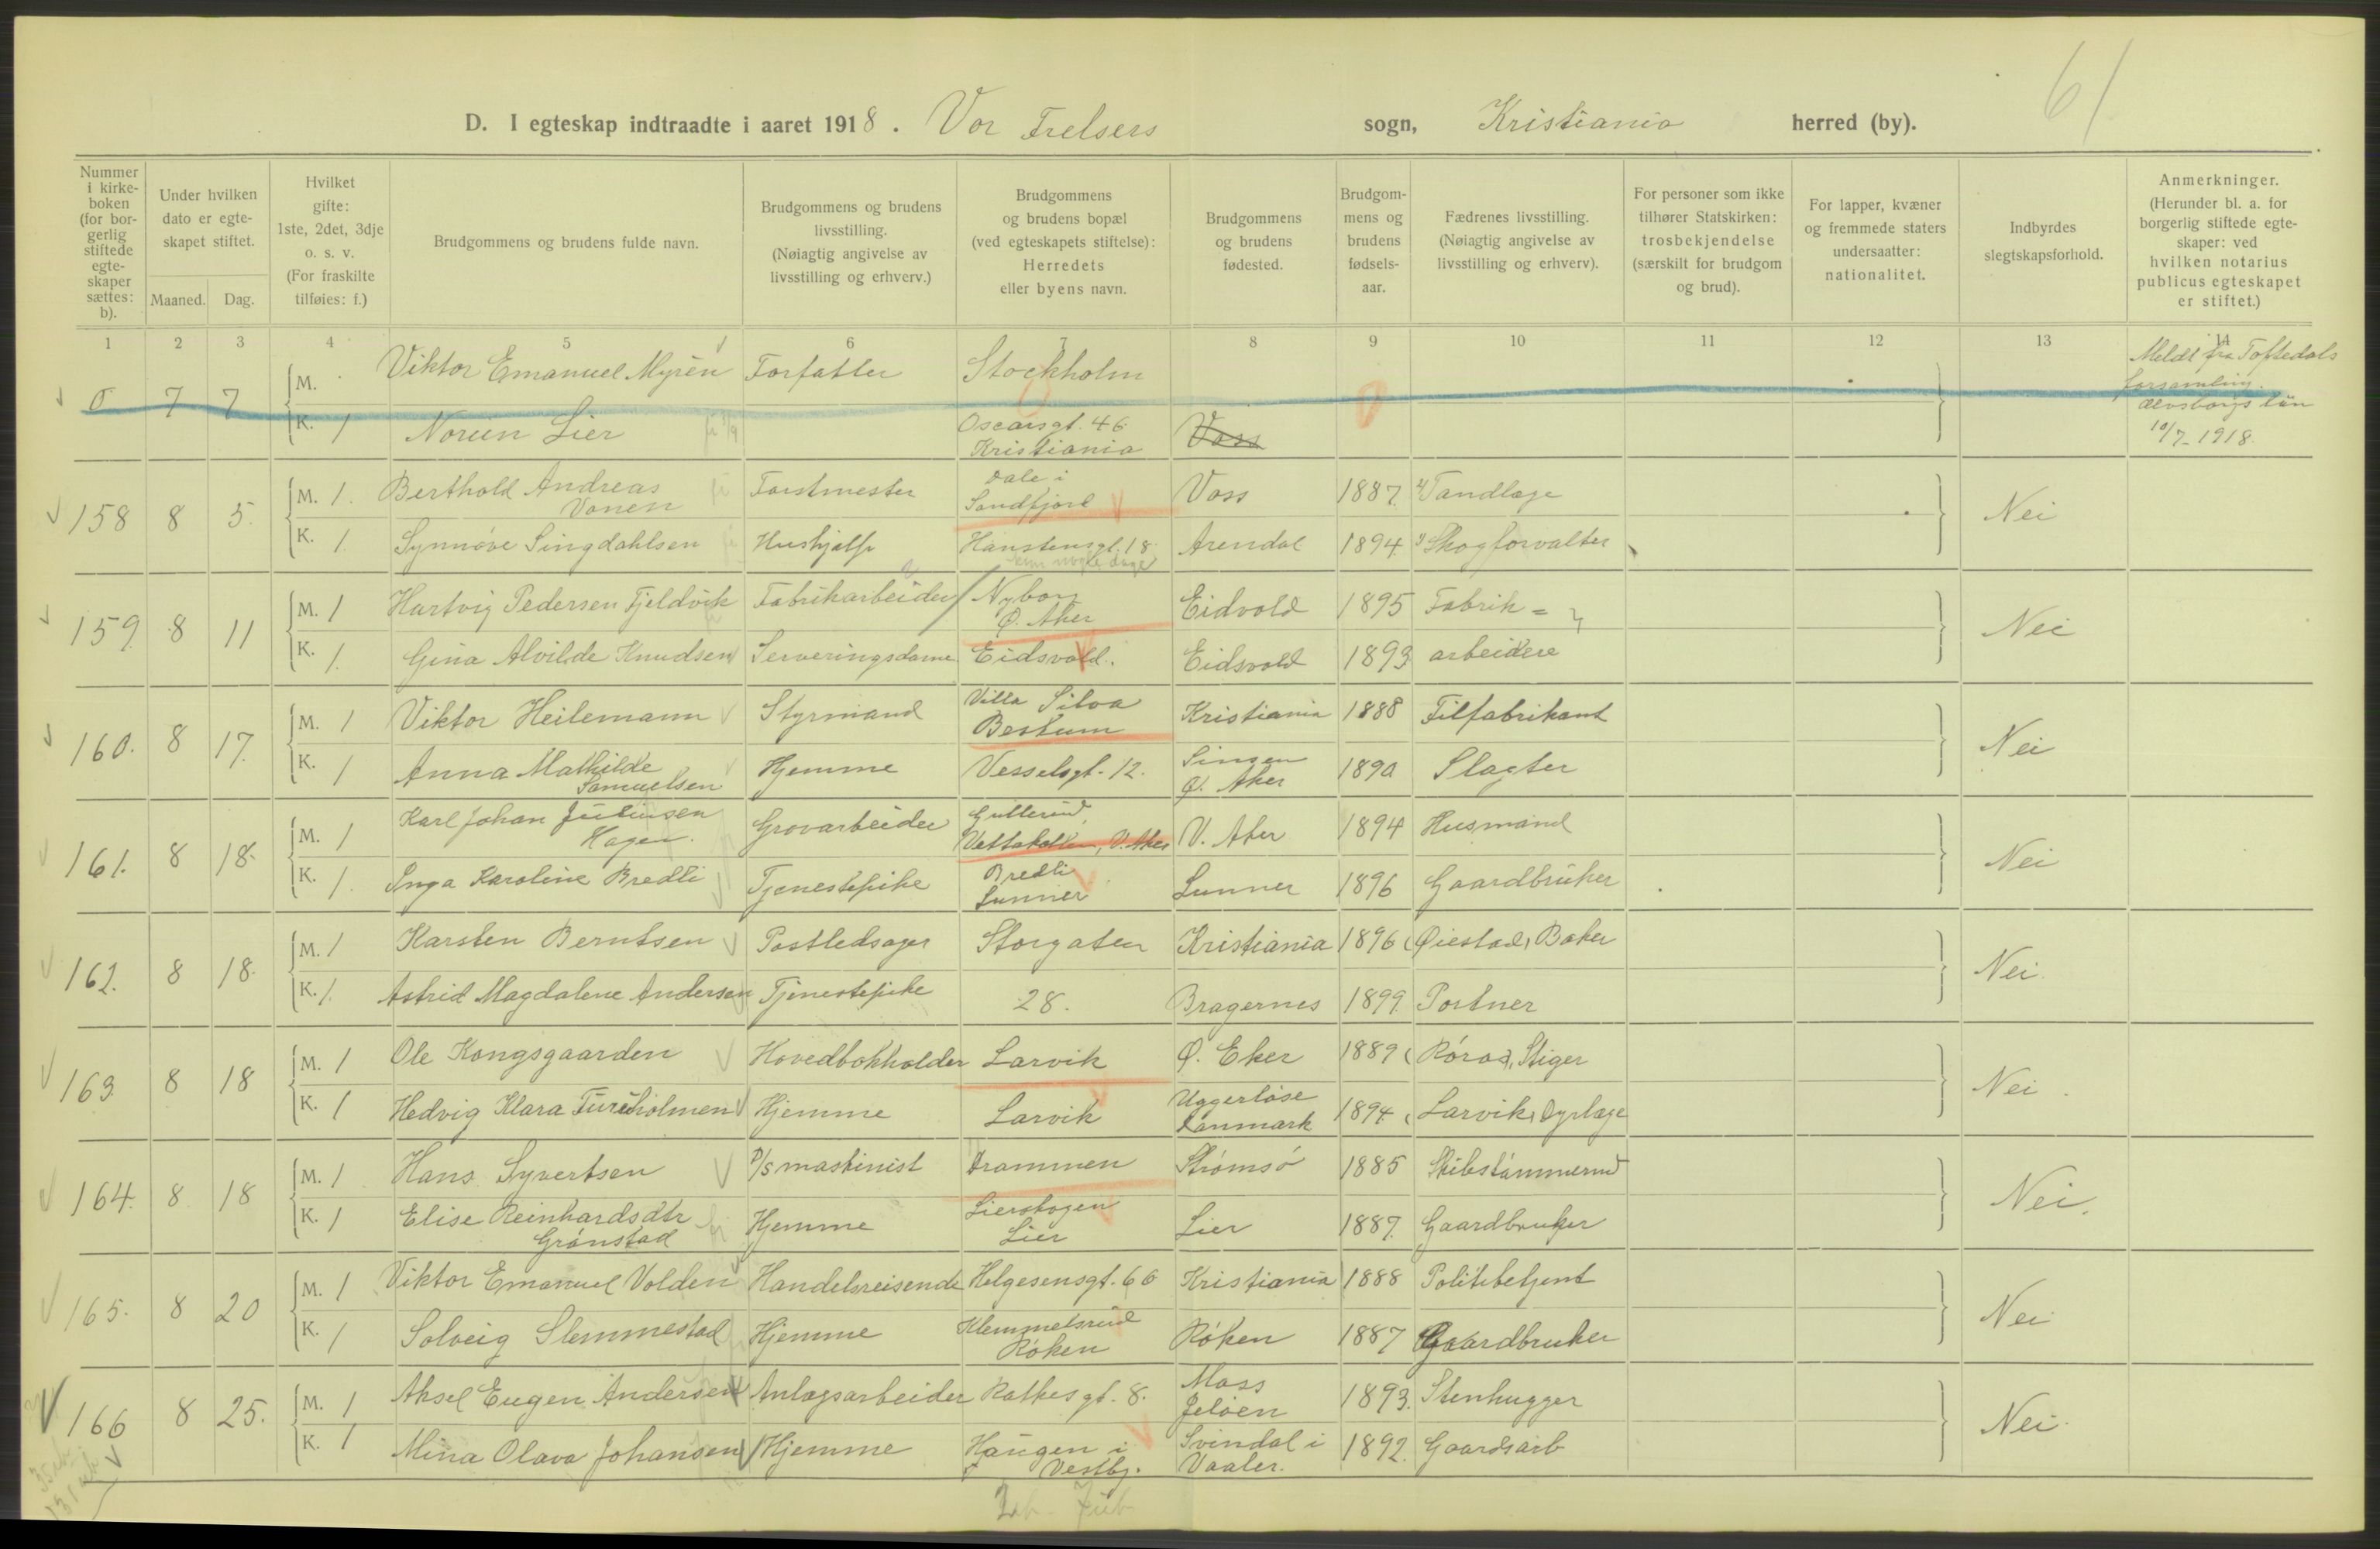 61
D. I egteskap indtraadte i aaret 1918. Vor Frelsers sogn, Kristiania herred (by).
Nummer i kirke-boken (for bor-gerlig stiftede egte-skaper sættes: b).
Under hvilken dato er egte-skapet stiftet.
Maaned. Dag.
Hvilket gifte: 1ste, 2det, 3dje o. s. v. (For fraskilte tilføies: f.)
Brudgommens og brudens fulde navn.
Brudgommens og brudens livsstilling. (Nøiagtig angivelse av livsstilling og erhverv.)
Brudgommens og brudens bopæl (ved egteskapets stiftelse): Herredets eller byens navn.
Brudgommens og brudens fødested.
Brudgom-mens og brudens fødsels-aar.
Fædrenes livsstilling. (Nøiagtig angivelse av livsstilling og erhverv).
For personer som ikke tilhører Statskirken: trosbekjendelse (særskilt for brudgom og brud).
For lapper, kvæner og fremmede staters undersaatter: nationalitet.
Indbyrdes slegtskapsforhold.
Anmerkninger. (Herunder bl. a. for borgerlig stiftede egte-skaper: ved hvilken notarius publicus egteskapet er stiftet.)
1 2 3 4 5 6 7 8 9 10 11 12 13 14
0 7 7 M. Viktor Emanuel Myrén Forfatter Stockholm Meldt fra Toftedals forsamling. 
K. 1 Noreen Lier Oscarsgt. 46 Kristiania Voss elvsborgs län 10/7-1918
158 8 5. M. 1. Berthold Andreas Vonen Forstmester Dale i Sondfjord Voss 1887 Tandlæge Nei
K. 1. Synnøve Singdahlsen Hushjælp Hanstensgt. 18. kun nogle dage Arendal 1894 Skogforvalter
159 8 11 M. 1 Hartvig Pedersen Fjeldvik Fabrikarbeider Nybon Ø. Aker Eidvold 1895 Fabrik= Nei
K. 1. Gina Alvilde Knudsen Serveringsdame Eidsvold. Eidsvold 1893 arbeidere
160. 8 17. M. 1 Viktor Heilemann Styrmand Villa Silva Bestum Kristiania 1888 Filfabrikant Nei
K. 1 Anna Mathilde Samuelsen Hjemme Vesselsgt. 12. Sinsen Ø. Aker 1890 Slagter
161. 8 18. M. 1 Karl Johan Juliussen Hagen. Grovarbeider Gullerud, Vettakollen, V. Aker V. Aker 1894 Husmand Nei
K. 1. Inga Karoline Bredli Tjenestepike Bredli Lunner Lunner 1896 Gaardbruker
162. 8 18. M. 1 Karsten Berntsen Postledsager Storgaten Kristiania 1896 Øiestad, Baker Nei.
K. 1. Astrid Magdalene Andersen Tjenestepike 28. Bragernes 1899 Portner
163. 8 18 M. 1 Ole Kongsgaarden Hovedbokholder Larvik Ø. Eker 1889 Røros, Stiger Nei
K. 1 Hedvig Klara Tureholmen Hjemme Larvik Uggerløse Danmark 1894 Larvik, Dyrlæge
164. 8 18 M. 1 Hans Syvertsen D/S maskinist Drammen Strømsø 1885 Skibstømmermd Nei.
K. 1 Elise Reinhardsdtr Grønstad Hjemme Lierskogen Lier Lier 1887. Gaardbruker
165. 8 20 M. 1 Viktor Emanuel Volden Handelsreisende Helgesensgt. 66 Kristiania 1888 Politibetjent Nei
K. 1 Solveig Slemmestad Hjemme Klemmetsrud Røken Røken 1887 Gaardbruker
166 8 25. M. 1 Aksel Eugen Andersen Anlægsarbeider Rathes gt. 8. Moss Jeløen 1893. Stenhugger Nei.
K. 1 Mina Olava Johansen Hjemme Haugen i Vestby. Svindal i Vaaler. 1892. Gaardsarb